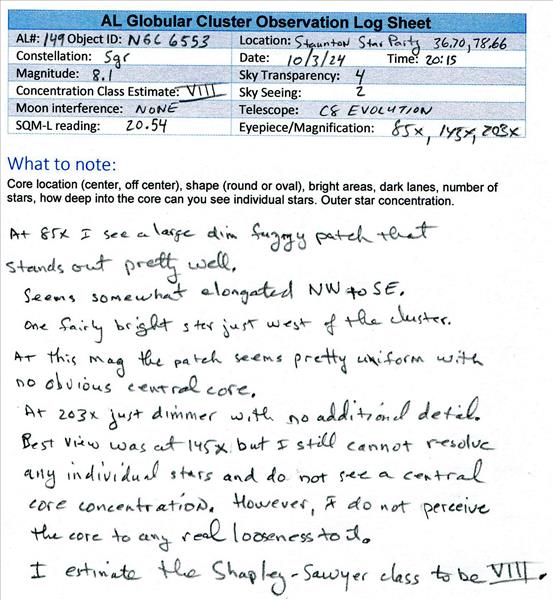 AL Globular Cluster Observation Log Sheet
AL#: 149 Object ID: NGC 6553 Location: Staunton Star Party 36.70, 78.66
Constellation: Sgr Date: 10/3/24 Time: 20:15
Magnitude: 8.1 Sky Transparency: 4
Concentration Class Estimate: VIII Sky Seeing: 2
Moon interference: NONE Telescope: C8 EVOLUTION
SQM-L reading: 20.54 Eyepiece/Magnification: 85x, 145x, 203x
What to note:
Core location (center, off center), shape (round or oval), bright areas, dark lanes, number of
stars, how deep into the core can you see individual stars. Outer star concentration.
At 85x I see a large dim fuzzy patch that
stands out pretty well.
Seems somewhat elongated NW to SE.
One fairly bright star just west of the cluster.
At this mag the patch seems pretty uniform with
no obvious central core.
At 203x just dimmer with no additional detail.
Best view was at 145x but I still cannot resolve
any individual stars and do not see a central
core concentration. However, I do not perceive
the core to any real looseness to it.
I estimate the Shapley-Sawyer class to be VIII.